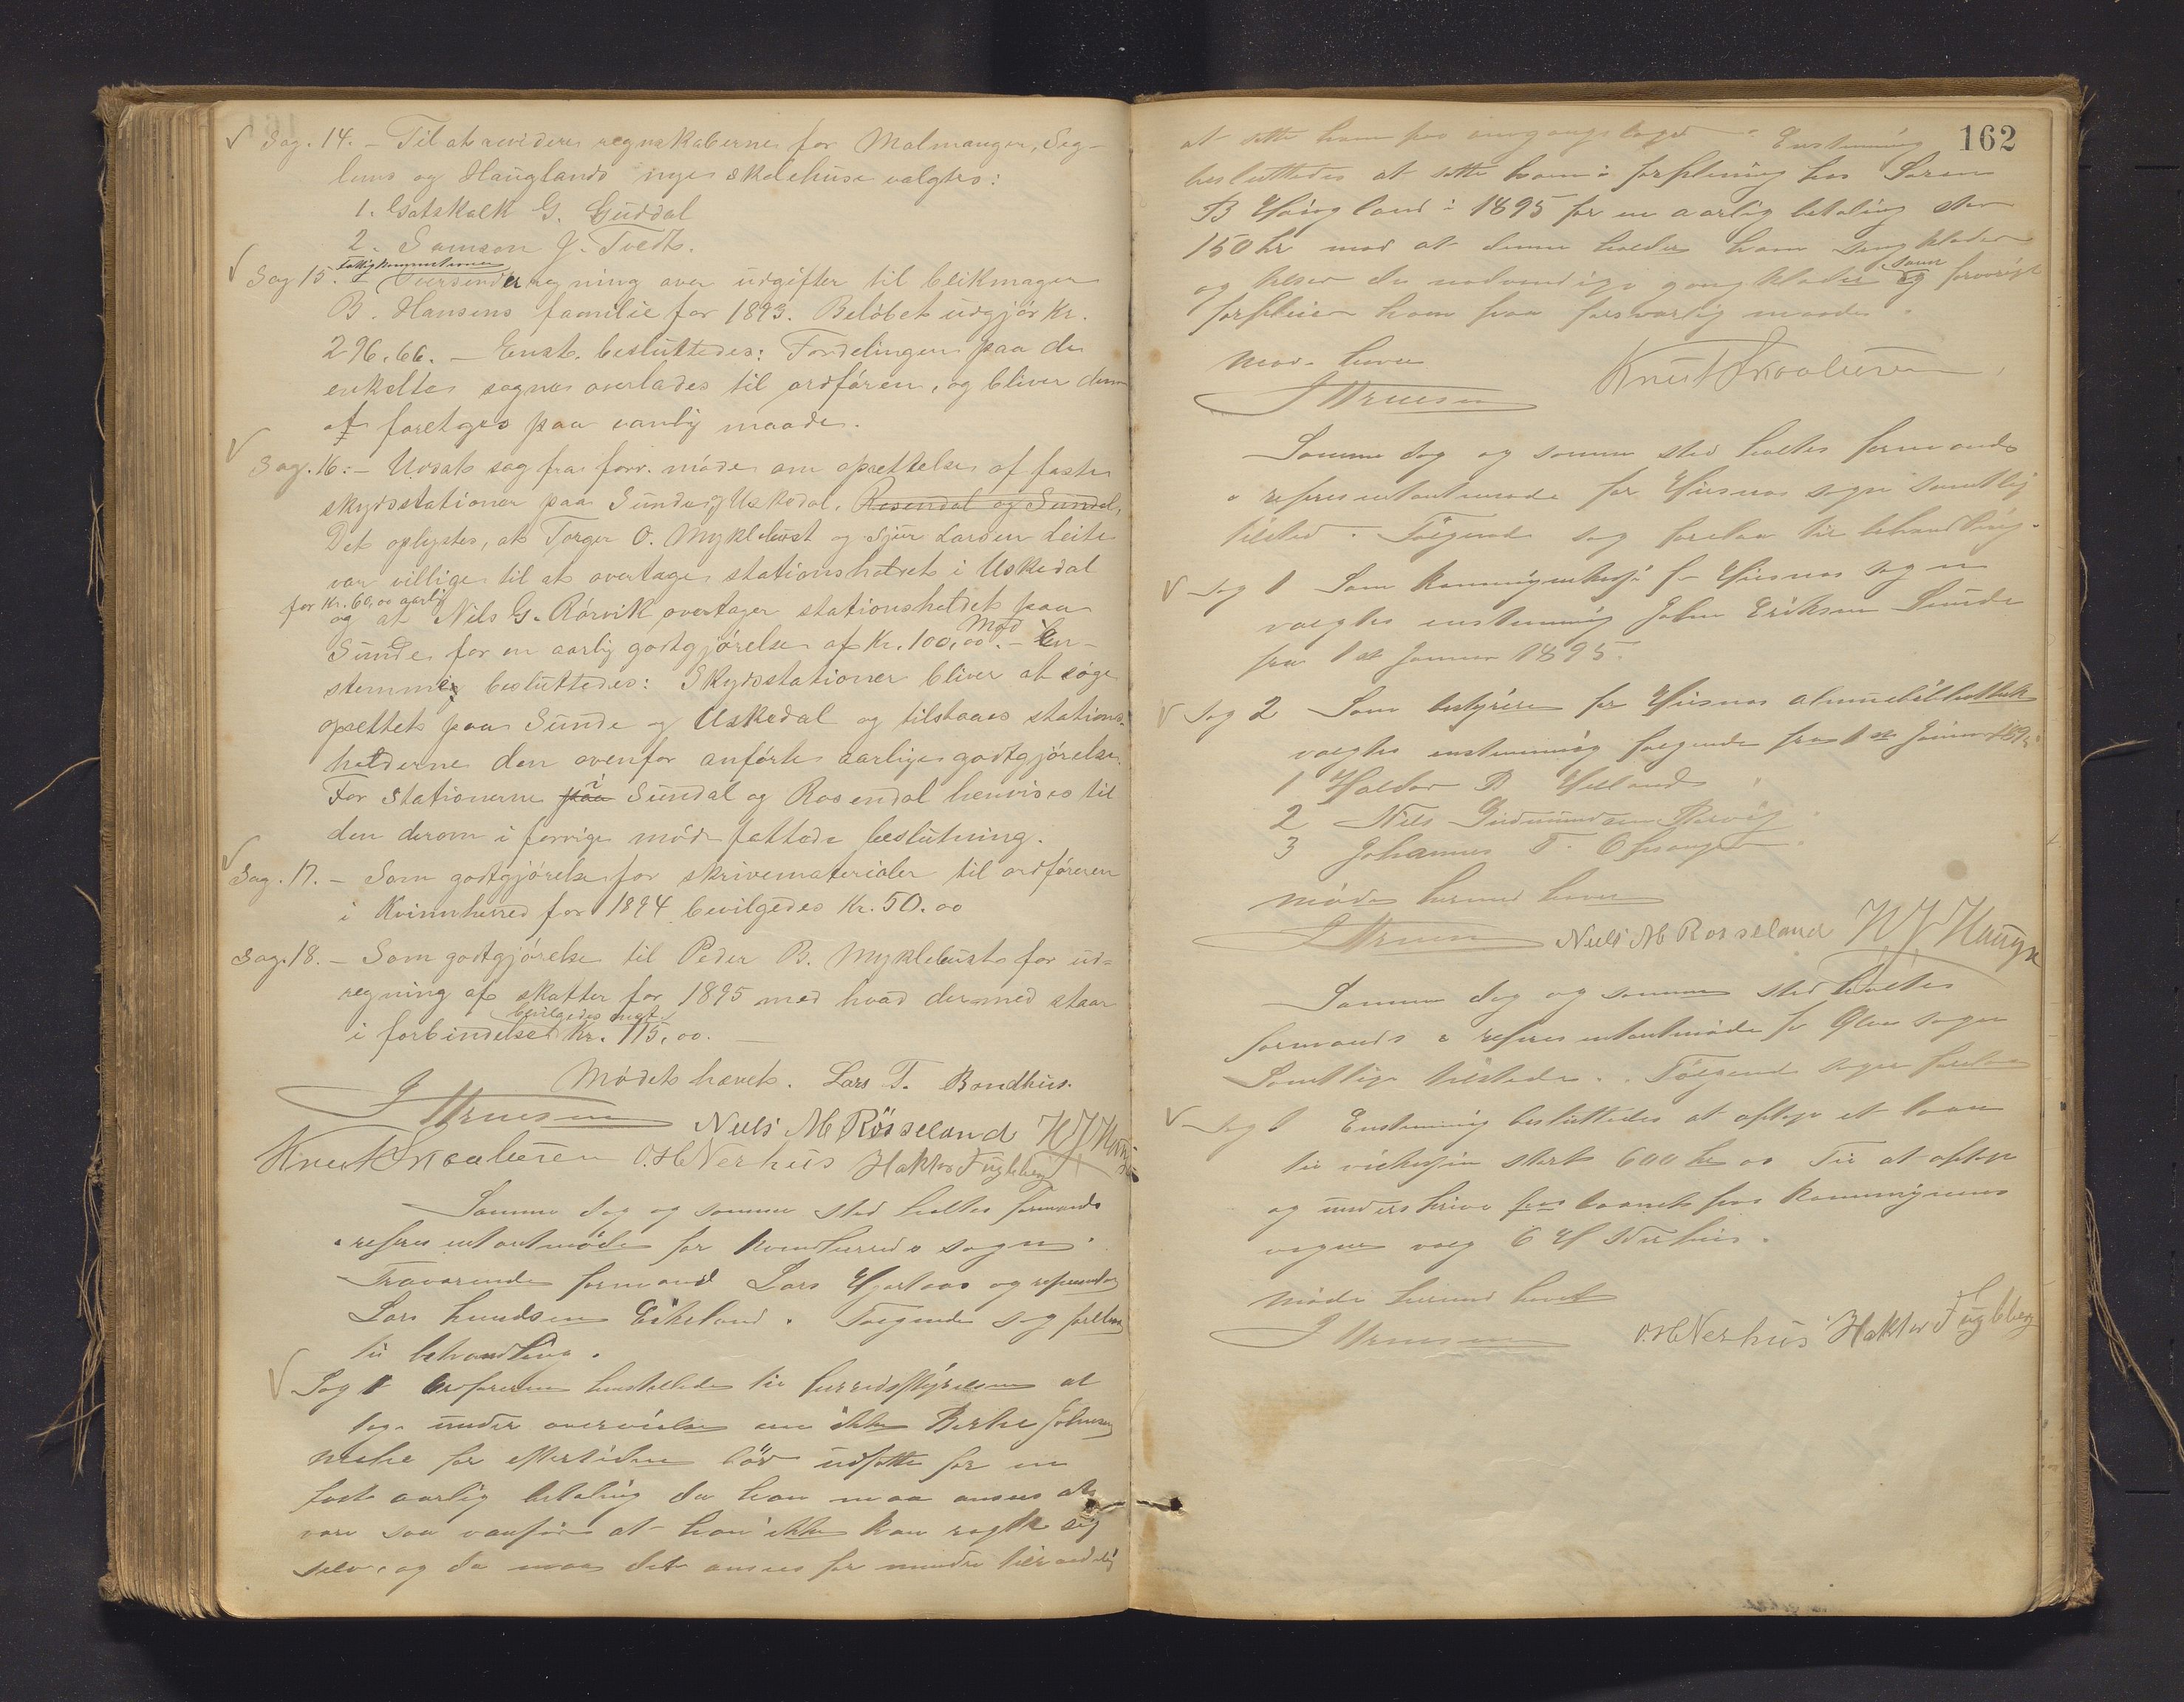 Sag. 14. – Til at revidere regnskaberne for Malmanger, Seg-
lems og Hauglands nye skolehuse valgtes:
1. Gotskalk G. Guddal
2. Samson J. Tvedt.
Fattigkommissionen
Sag 15. – oversender regning over udgifter til blikmager
B. Hansens familie for 1893. Beløbet udgjør Kr.
296.66. – Enst. besluttedes: Fordelingen paa de
enkelte sogne overlades til ordføren, og bliver den
af foretges paa vanlig maade.
Sag. 16. – Udsat sag fra forr. møde om oprettelse af faste
skydsstationer paa Sunde og Uskedal. Rosendal og Sundal,
Det oplystes, at Torger O. Myklebust og Sjur Larsen Leite
var villige til at overtage stationsholdet i Uskedal
for Kr. 60,00 aarlig
og at Nils G. Rørvik overtager stationsholdet paa
Sunde for en aarlig godtgjørelse af Kr. 100,00. – Mod En-
stemmig besluttedes: Skydsstationer bliver at søge
oprettet paa Sunde og Uskedal og tilstaaes stations-
holderne den ovenfor anførte aarlige godtgjørelse.
For stationerne paa Sundal og Rosendal henvises til
den derom i forrige møde fattede beslutning.
Sag. 17. – Som godtgjørelse for skrivematerialer til ordføreren
i Kvinnherred for 1894 bevilgedes Kr. 50.00
Sag. 18. – Som godtgjørelse til Peder B. Myklebust for ud-
regning af skatter for 1895 med hvad dermed staar
bevilgedes
i forbindelse Kr. 115,00.
Mødet hævet. Lars T. Bondhus.
Nils M Røsseland
O.H Nerhus Haktor Fugleberg
Samme dag og samme sted holtes formands
& representantmøde for Kvindherreds sogn.
Fraværende formand Lars Hjortaas og representant
Lars Knudsen Eikeland. Følgende sag forelaa
til behandling.
Sag 1 Ordføreren henstillede til herredsstyrelsen at
tage under overveielse om ikke Johannes
for eftertiden bør udsættes for en
fast aarlig betaling da han maa ansees at
være saa vanfør at han ikke kan røgte sig
selv, og da maa det ansees for mindre tilraadelig
162
at sette ham paa omgangslægd. Enstemmig
besluttedes at sette ham i forpleining hos Søren
B Haugland i 1895 for en aarlig betaling stor
150 kr mod at denne holder ham seng klæder
og helse de nødvendige gangklæder samt og forøvrigt
forpleier ham paa forsvarlig maade.
Møde hævet
Samme dag og samme sted holtes formands
& representantmøde for Husnes sogn samtlig
tilsted. Følgende sag forelaa til behandling.
Sag 1 Som kommunekasse f– Husnes sogn
valgtes enstemmig John Eriksen Sunde
fra 1st Januar 1895.
Sag 2 Som bestyrere for Husnes almuebibliothek
valgtes enstemmig følgende fra 1ste Januar 1895
1 Haldor B Helland
2 Nils Gudmundsen Rørvig
3 Johannes T. Opsanger
Møde hermed hævet
Niels M Rosseland
Samme dag og samme sted holtes
formands & representantmøde for Ølve sogn
Samtlige tilstede. Følgende sager forelaa
Sag 1 Enstemmig besluttedes at optage et laan
til stort 600 kr 00 Til at optage
og underskrive for laanet paa kommunens
vegne valg O H Nerhus.
Møde hermed hævet
O.H Nerhus Haktor Fugleberg